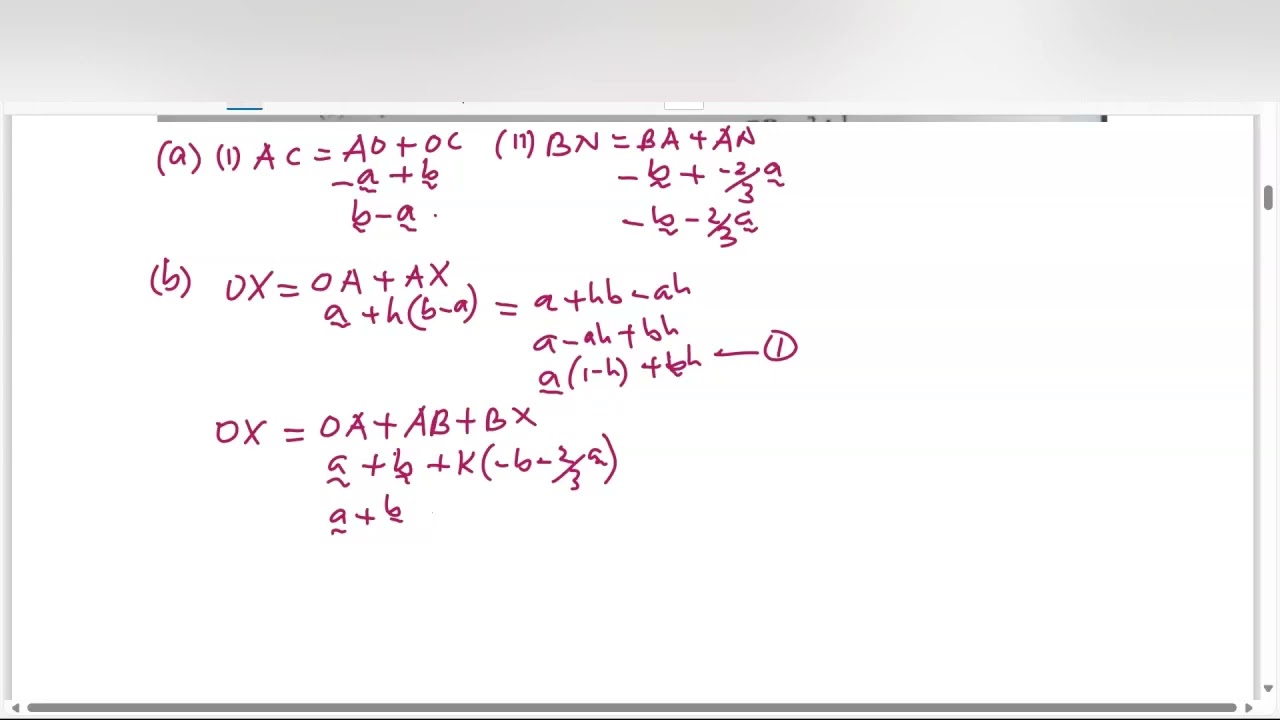 (a) (i) AC = AO + OC (ii) BN = BA + AN
-a + b -b + -2/3 a
b - a . -b - 2/3 a
(b) OX = OA + AX
a + h(b-a) = a + hb - ah
a - ah + bh
a(1-h) + bh — ①
OX = OA + AB + BX
a + b + K(-b - 2/3 a)
a + b